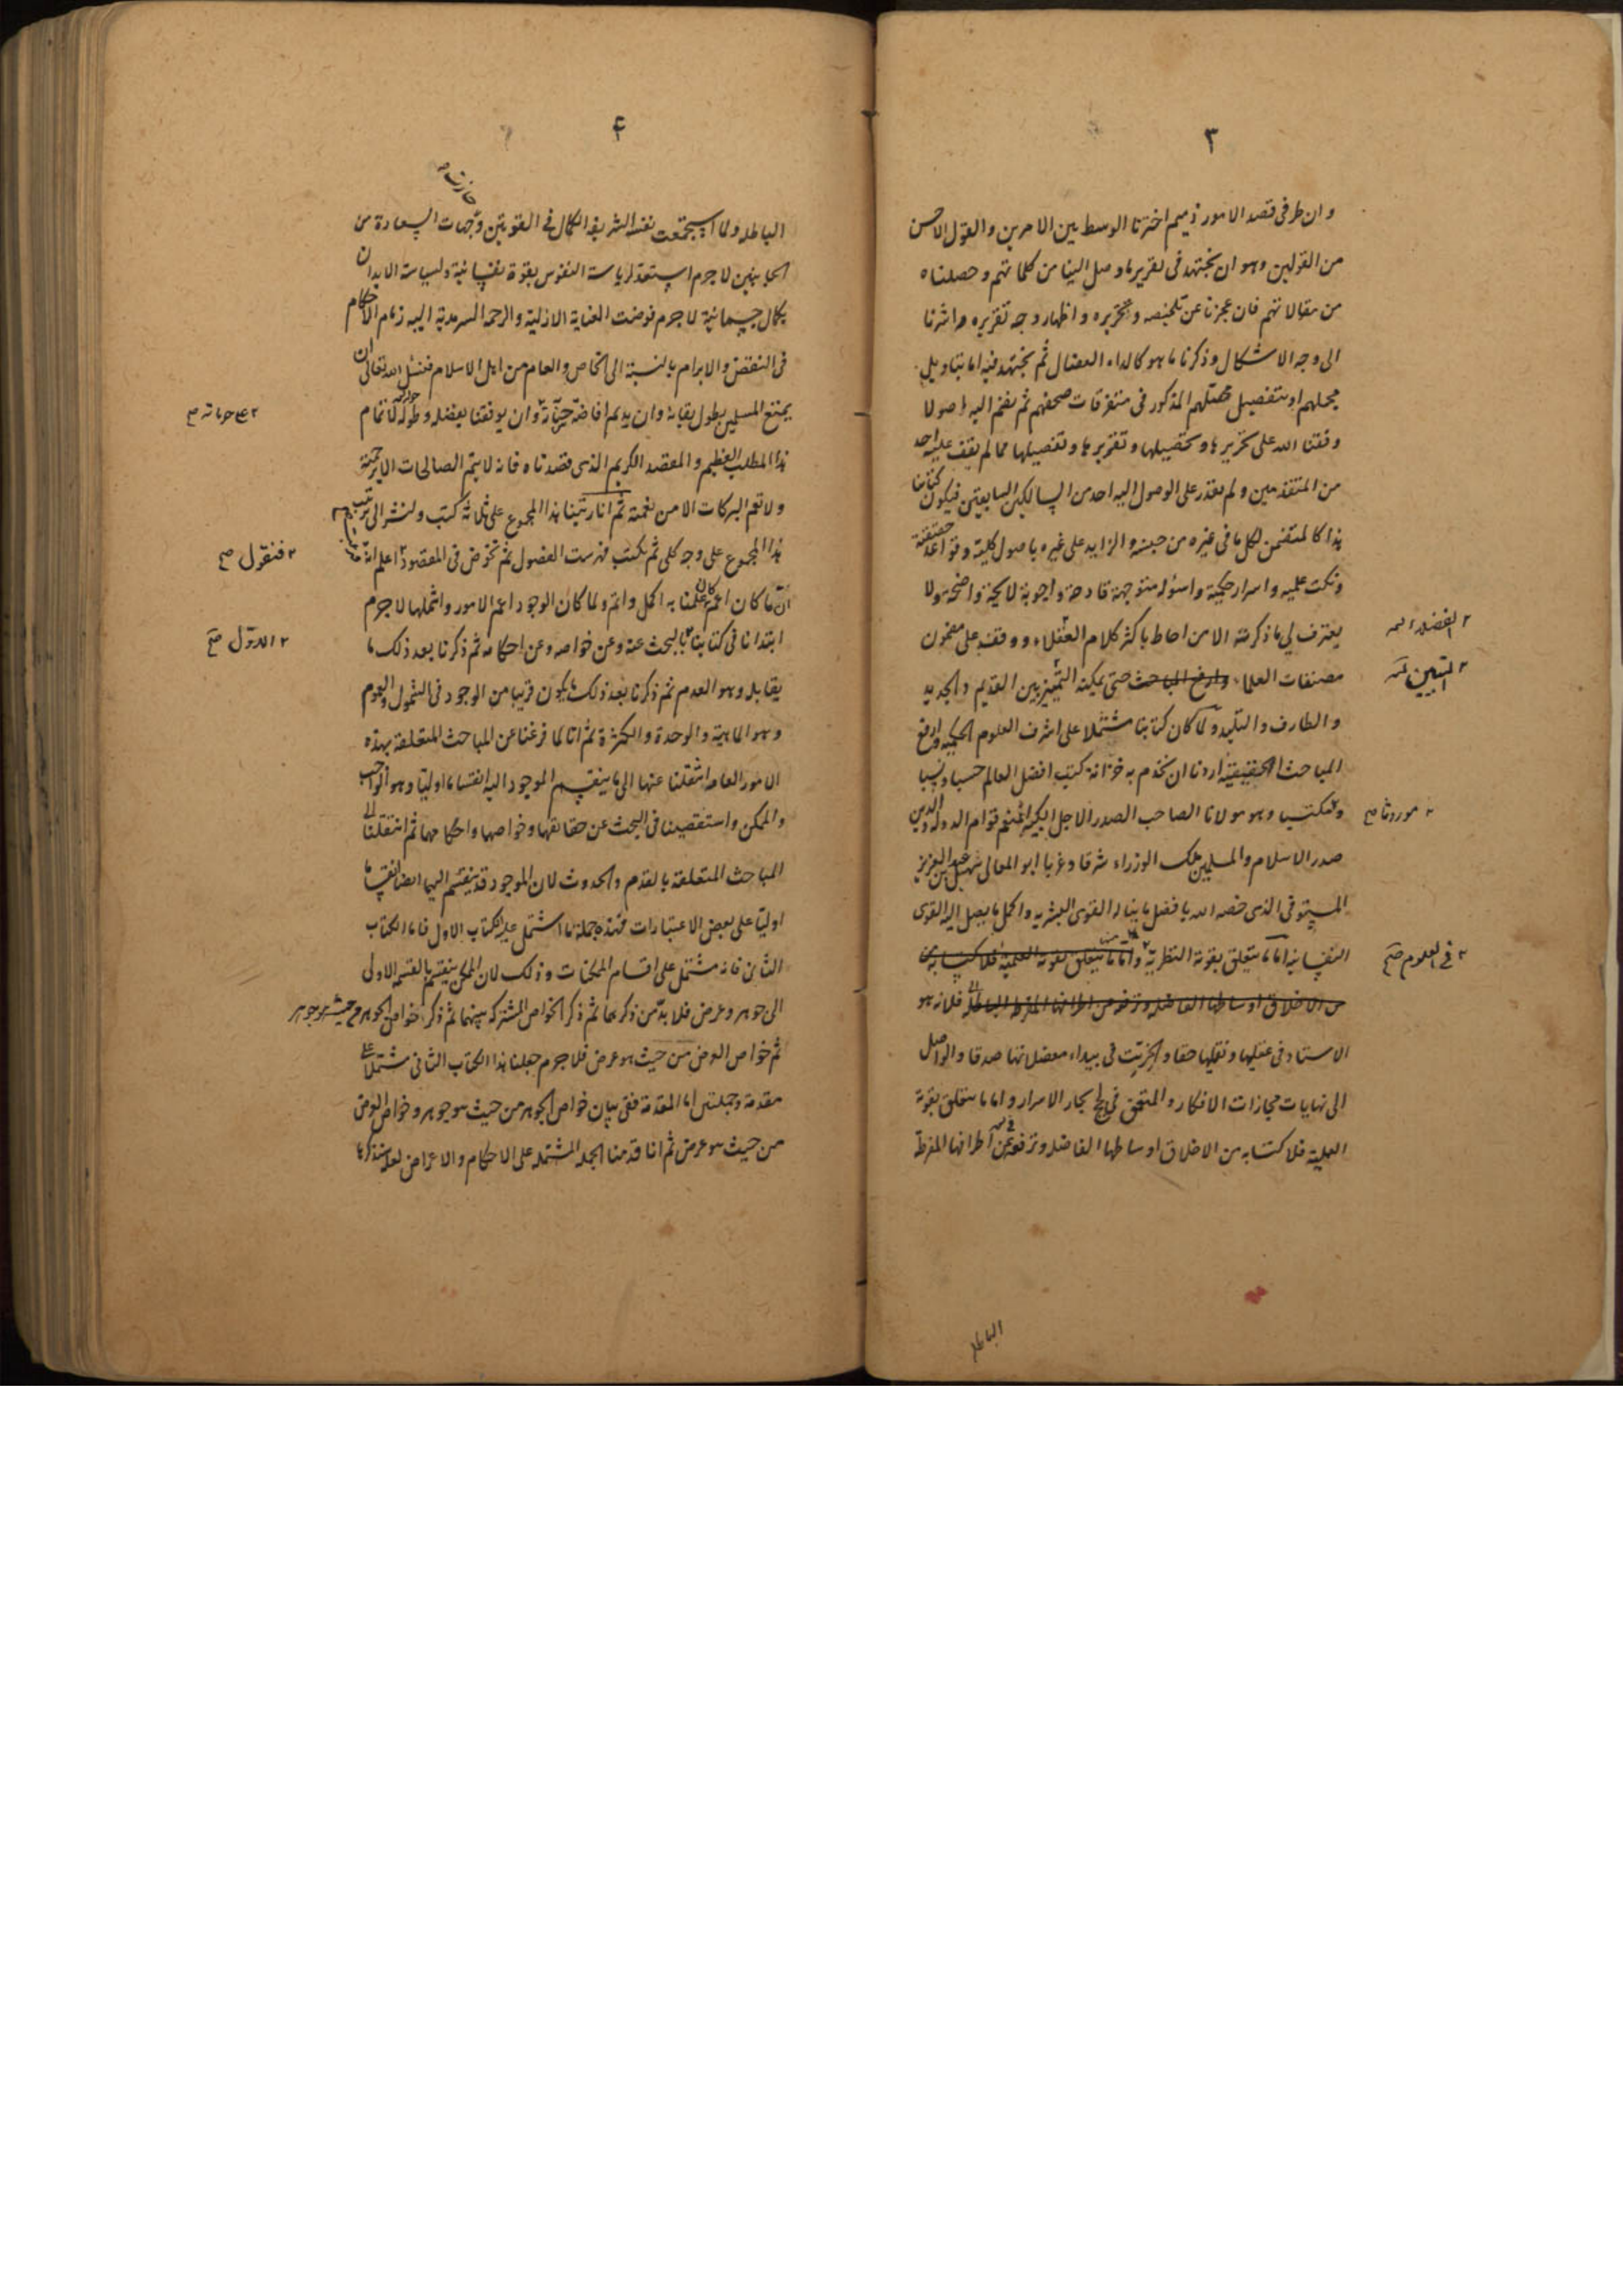 ٣
وان طرفى قصد الامور ذميم اخترنا الوسط بين الامرين والقول الاحسن
من القولين وهو ان نجتهد فى تقرير ما وصل الينا من كلماتهم وحصلناه
من مقالاتهم فان عجزنا عن تلخيصه وتحريره واظهار وجه تقريره اشرنا
الى وجه الاشكال وذكرنا ما هو كالداء العضال ثم نجتهد فيه اما بتاويل
مجملهم او بتفصيل محصلهم المذكور فى متفرقات صحفهم ثم نضم اليه اصولا
وفقنا الله على تحريرها وتحصيلها وتقريرها وتفصيلها مما لم يقف عليه احد
من المتقدمين ولم يقدر على الوصول اليه احد من السالكين السابقين فيكون كتابنا
هذا كالمتضمن لكل ما فى غيره من جنسه والزايد على غيره باصول كلية وقواعد حقيقية
ونكت علمية واسرار حكمية واسئولة متوجهة قادحة واجوبة لايحة واضحة ولا
يعترف لى بما ذكرته الا من احاط باكثر كلام العقلاء ووقف على مضمون
٢ الفضلاء
مصنفات العلماء وارفع المباحث حتى يمكنه التمييز بين القديم والجديد
٢ التبيين
والطارف والتليد ولما كان كتابنا مشتملا على اشرف العلوم الحكمية وارفع
المباحث الحقيقية اردنا ان نخدم به خزانة كتب افضل العالم حسبا ونسبا
ومكتسبا وهو مولانا الصاحب الصدر الاجل الكبير المنعم قوام الدولة والدين
٢ موروثا صح
صدر الاسلام والمسلمين ملك الوزراء شرقا وغربا ابو المعالى سهيل بن عبد العزيز
المستوفى الذى خصه الله بافضل ما يناله القوى البشريه واكمل ما يصل اليه القوى
النفسانيه اما ما يتعلق بقوته النظرية واما ما يتعلق بقوته العلمية فلاكتسابه من
٢ فى العلوم صح
من الاخلاق اوساطها الفاضله وترفعه من اطرافها المفرطه الباطله فلانه هو
الاستاد فى عقليها ونقليها حقا والخريت فى بيداء معضلاتها صدقا والواصل
الى نهايات مجازات الافكار والمتعمق فى لج بحار الاسرار واما ما يتعلق بقوته
العملية فلاكتسابه من الاخلاق اوساطها الفاضله وترفعه عن اطرافها المفرطة
الباطله
۴
الباطله ولما استجمعت نفسه الشريفة الكمال فى القوتين وجهات السعادة من
الجانبين لاجرم استعد لرياسة النفوس بقوة نفسانية ولسياسة الابدان
بكمال جسمانية لاجرم فوضت العناية الازلية والرحمة السرمدية اليه زمام الاحكام
فى النقض والابرام بالنسبة الى الخاص والعام من اهل الاسلام فنسئل الله تعالى ان
يمتع المسلمين بطول بقائه وان يديم افاضة خيراته وان يوفقنا بفضله وطوله لاتمام
هذا المطلب العظيم والمقصد الكريم الذى قصدناه فانه لا يتم الصالحات الا برحمته
ولا تعم البركات الا من نعمته ثم انا رتبنا هذا المجموع على ثلاثة كتب ولنشر الى ترتيب
هذا المجموع على وجه كلى ثم نكتب فهرست الفصول ثم نخوض فى المقصود اعلم انه
٢ فنقول صح
ان ما كان اعم كان علمنا به اكمل واتم ولما كان الوجود اعم الامور واشملها لاجرم
ابتدانا فى كتابنا بالبحث عنه وعن خواصه وعن احكامه ثم ذكرنا بعد ذلك ما
٢ الاول صح
يقابله وهو العدم ثم ذكرنا بعد ذلك ما يكون قريبا من الوجود فى الشمول والعموم
وهو الماهية والوحدة والكثرة ثم انا لما فرغنا عن المباحث المتعلقة بهذه
الامور العامه انتقلنا عنها الى ما ينقسم الموجود اليه انقساما اوليا وهو الواجب
والممكن واستقصينا فى البحث عن حقايقها وخواصها واحكامهما ثم انتقلنا الى
المباحث المتعلقة بالقدم والحدوث لان الموجود قد ينقسم اليهما ايضا انقساما
اوليا على بعض الاعتبارات فهذه جملة ما اشتمل عليه الكتاب الاول فاما الكتاب
الثانى فانه مشتمل على اقسام الممكنات وذلك لان الممكن ينقسم بالقسمه الاولى
الى جوهر وعرض فلا بد من ذكرهما ثم ذكر الخواص المشتركه بينهما ثم ذكر خواص الجوهر من حيث هو جوهر
ثم خواص العرض من حيث هو عرض فلاجرم جعلنا هذا الكتاب الثانى مشتملا على
مقدمة وجملتين اما المقدمة ففى بيان خواص الجوهر من حيث هو جوهر وخواص العرض
من حيث هو عرض ثم انا قدمنا الجملة المشتملة على الاحكام والاعراض لعلة سنذكرها